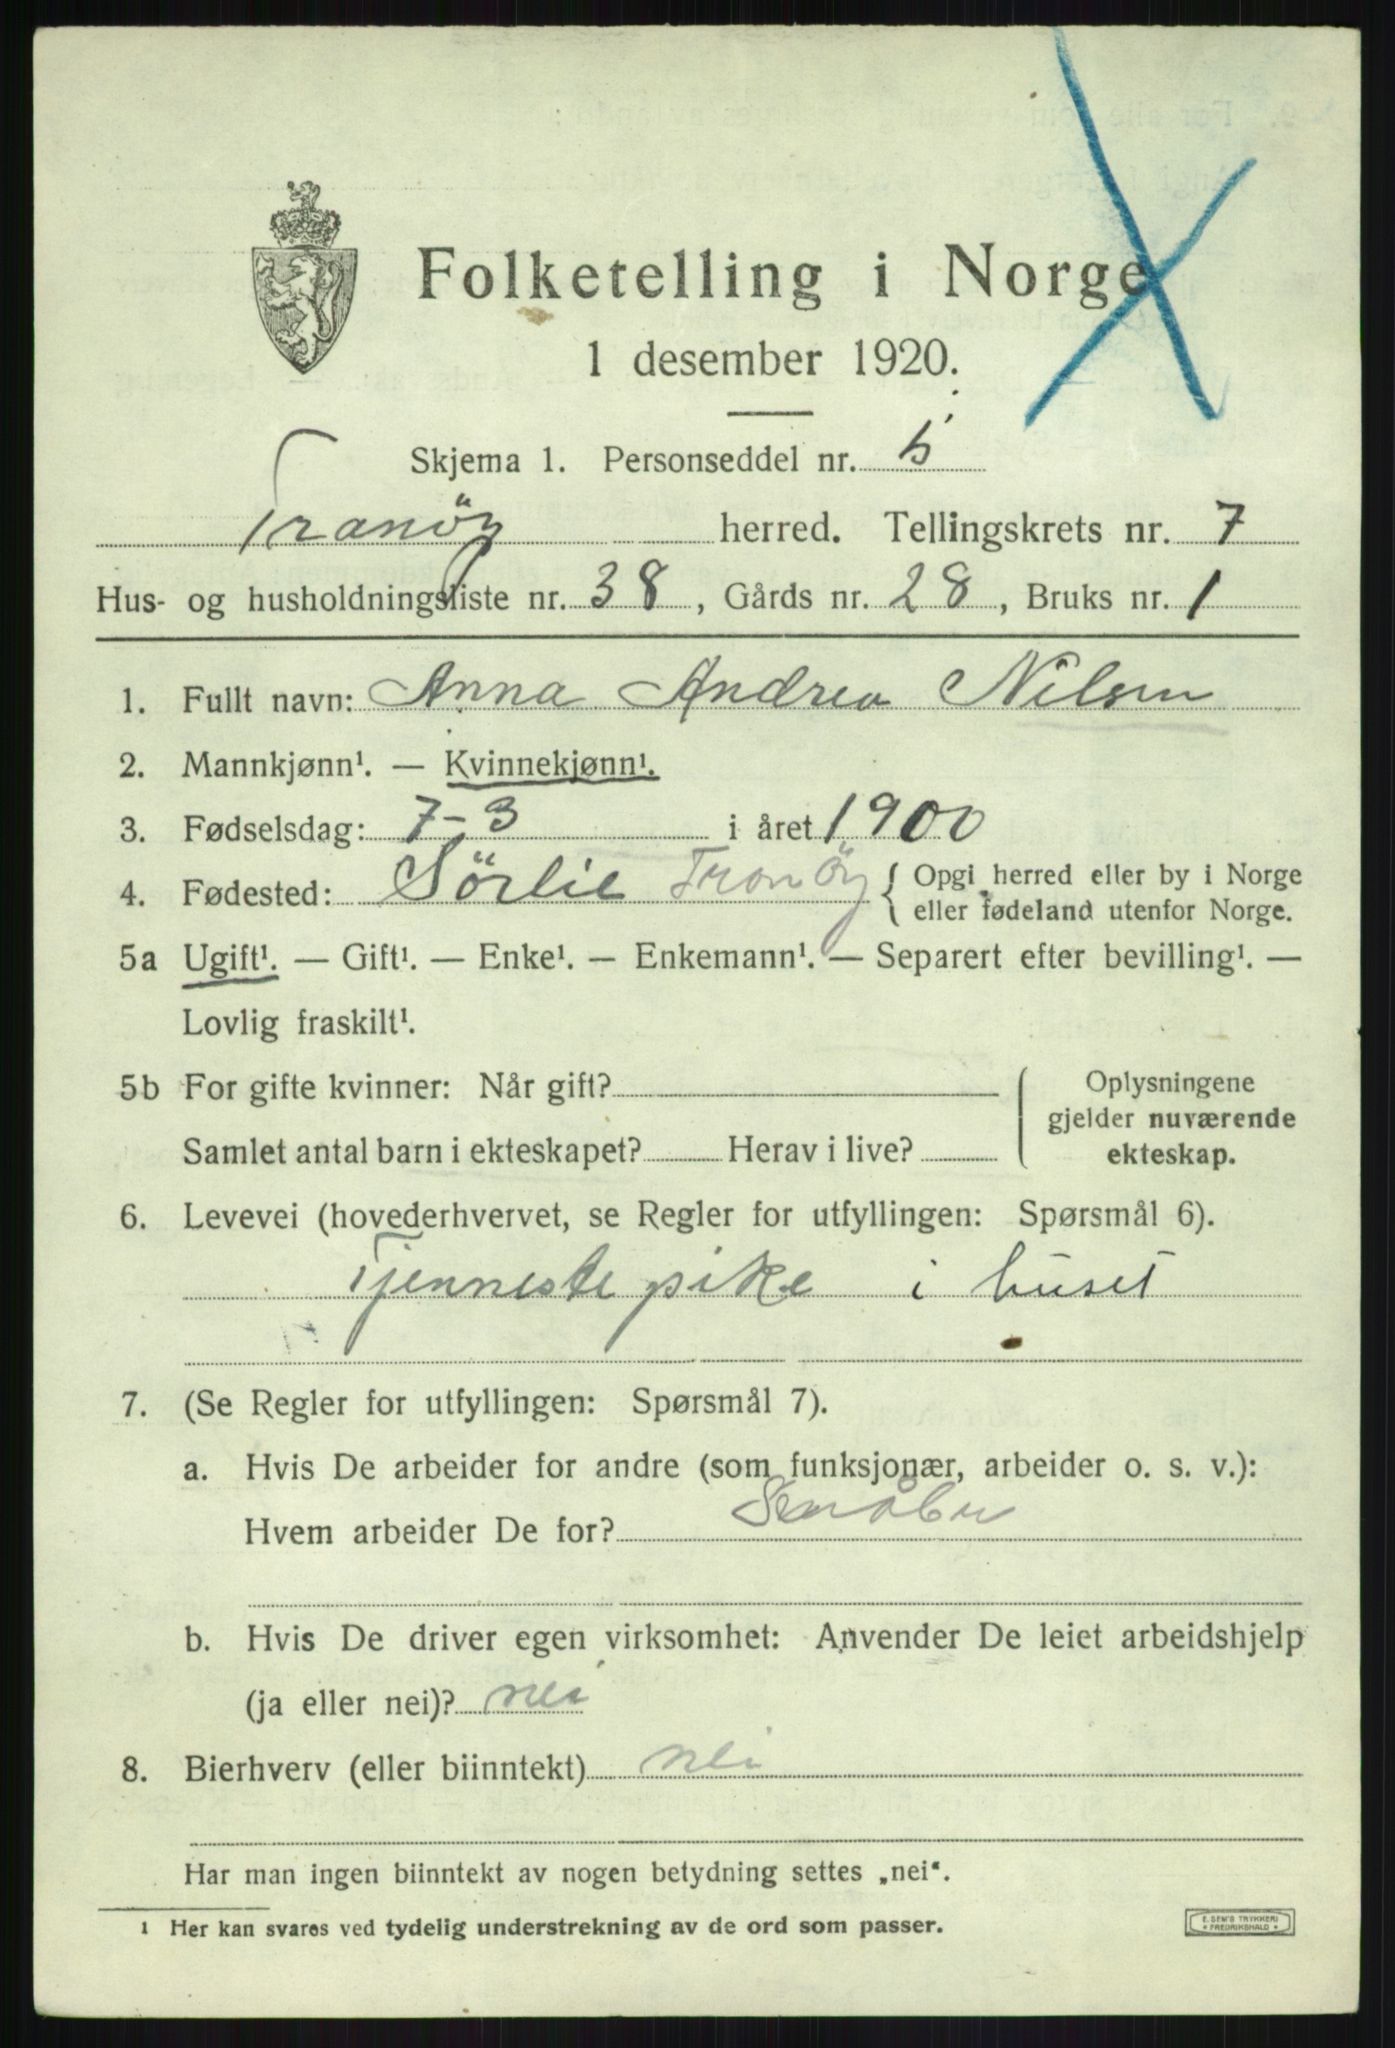 Folketelling i Norge
1 desember 1920.
Skjema 1. Personseddel nr. 5
Tranöy herred. Tellingskrets nr. 7
Hus- og husholdningsliste nr. 38, Gårds nr. 28, Bruks nr. 1
1. Fullt navn: Anna Andrea Nilsen
2. Mannkjønn¹. — Kvinnekjønn¹.
3. Fødselsdag: 7-3 i året 1900
4. Fødested: Sörlie Tranöy { Opgi herred eller by i Norge
eller fødeland utenfor Norge.
5a Ugift¹. — Gift¹. — Enke¹. — Enkemann¹. — Separert efter bevilling¹. —
Lovlig fraskilt¹.
5b For gifte kvinner: Når gift?
Samlet antal barn i ekteskapet? Herav i live?
Oplysningene
gjelder nuværende
ekteskap.
6. Levevei (hovederhvervet, se Regler for utfyllingen: Spørsmål 6).
Tjenneste pike i huset
7. (Se Regler for utfyllingen: Spørsmål 7).
a. Hvis De arbeider for andre (som funksjonær, arbeider o. s. v.):
Hvem arbeider De for?
b. Hvis De driver egen virksomhet: Anvender De leiet arbeidshjelp
(ja eller nei)? nei
8. Bierhverv (eller biinntekt) nei
Har man ingen biinntekt av nogen betydning settes „nei“.
¹ Her kan svares ved tydelig understrekning av de ord som passer.
E. SEM'S TRYKKERI
FREDRIKSHALD